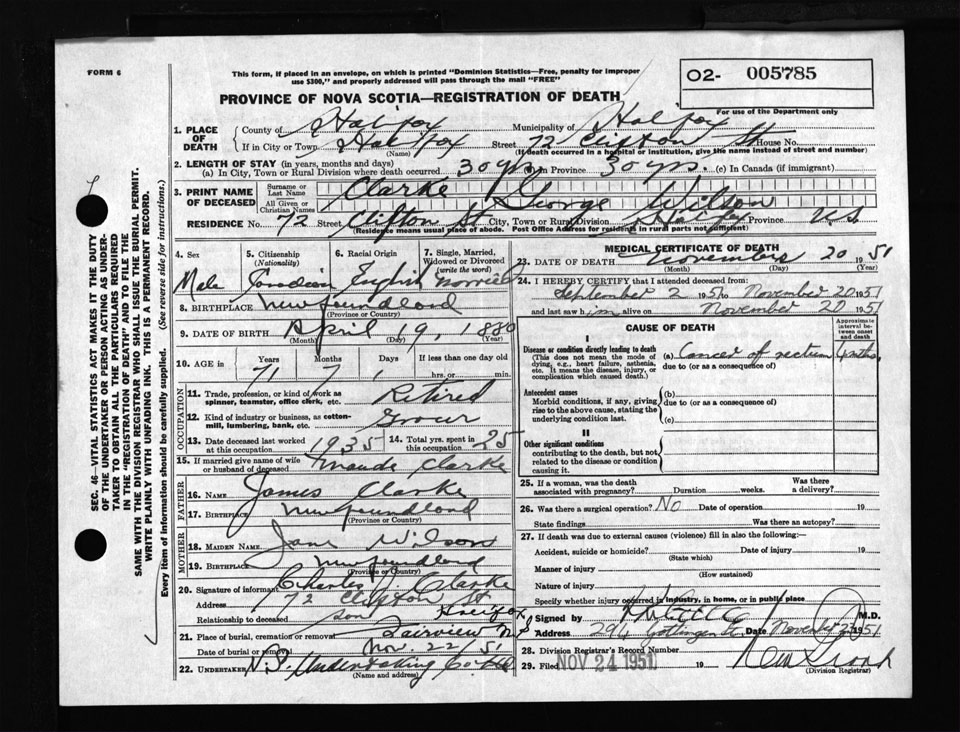 FORM 6
This form, if placed in an envelope, on which is printed "Dominion Statistics—Free, penalty for improper
use $300," and properly addressed will pass through the mail "FREE"
O2- 005785
PROVINCE OF NOVA SCOTIA—REGISTRATION OF DEATH
For use of the Department only
1. PLACE OF DEATH
County of Halifax Municipality of Halifax
If in City or Town Halifax Street 72 Clifton St House No.
(Name) (If death occurred in a hospital or institution, give the name instead of street and number)
2. LENGTH OF STAY (in years, months and days)
(a) In City, Town or Rural Division where death occurred 30 yrs. (b) In Province 30 yrs. (c) In Canada (if immigrant)
3. PRINT NAME OF DECEASED
Surname or Last Name Clarke
All Given or Christian Names George Wilson
RESIDENCE No. 72 Street Clifton St City, Town or Rural Division Halifax Province N.S.
(Residence means usual place of abode. Post Office Address for residents in rural parts not sufficient)
4. Sex Male
5. Citizenship (Nationality) Canadian
6. Racial Origin English
7. Single, Married, Widowed or Divorced (write the word) Married
8. BIRTHPLACE Newfoundland
(Province or Country)
9. DATE OF BIRTH April 19, 1880
(Month) (Day) (Year)
10. AGE in Years Months Days If less than one day old
71 7 hrs. or min.
OCCUPATION
11. Trade, profession, or kind of work as spinner, teamster, office clerk, etc. Retired
12. Kind of industry or business, as cotton-mill, lumbering, bank, etc.
13. Date deceased last worked at this occupation 1935
14. Total yrs. spent in this occupation 25
15. If married give name of wife or husband of deceased Maude Clarke
FATHER
16. NAME James Clarke
17. BIRTHPLACE Newfoundland
(Province or Country)
MOTHER
18. MAIDEN NAME Jane Wilson
19. BIRTHPLACE Newfoundland
(Province or Country)
20. Signature of informant Charles Clarke
Address 72 Clifton St Halifax
Relationship to deceased son
21. Place of burial, cremation or removal Fairview
Date of burial or removal Nov. 22/51
22. UNDERTAKER N.S. Undertaking Co Ltd
(Name and address)
MEDICAL CERTIFICATE OF DEATH
23. DATE OF DEATH November 20 1951
(Month) (Day) (Year)
24. I HEREBY CERTIFY that I attended deceased from:
September 2 1951 to November 20 1951
and last saw him alive on November 20 1951
CAUSE OF DEATH
Approximate interval between onset and death
I
Disease or condition directly leading to death
(This does not mean the mode of dying, e.g., heart failure, asthenia, etc. It means the disease, injury, or complication which caused death.)
(a) Cancer of rectum 4 mths.
due to (or as a consequence of)
Antecedent causes
Morbid conditions, if any, giving rise to the above cause, stating the underlying condition last.
(b)
due to (or as a consequence of)
(c)
II
Other significant conditions
contributing to the death, but not related to the disease or condition causing it.
25. If a woman, was the death associated with pregnancy? Duration weeks. Was there a delivery?
26. Was there a surgical operation? No Date of operation 19
State findings Was there an autopsy?
27. If death was due to external causes (violence) fill in also the following:—
Accident, suicide or homicide? Date of injury 19
(State which)
Manner of injury
(How sustained)
Nature of injury
Specify whether injury occurred in industry, in home, or in public place
Signed by M.D.
Address 294 Gottingen St. Date November 23 1951
28. Division Registrar's Record Number
29. Filed NOV 24 1951 19
(Division Registrar)
SEC. 46—VITAL STATISTICS ACT MAKES IT THE DUTY
OF THE UNDERTAKER OR PERSON ACTING AS UNDER-
TAKER TO OBTAIN ALL THE PARTICULARS REQUIRED
IN THE "REGISTRATION OF DEATH" AND TO FILE THE
SAME WITH THE DIVISION REGISTRAR WHO SHALL ISSUE THE BURIAL PERMIT.
WRITE PLAINLY WITH UNFADING INK. THIS IS A PERMANENT RECORD.
Every item of information should be carefully supplied. (See reverse side for instructions.)